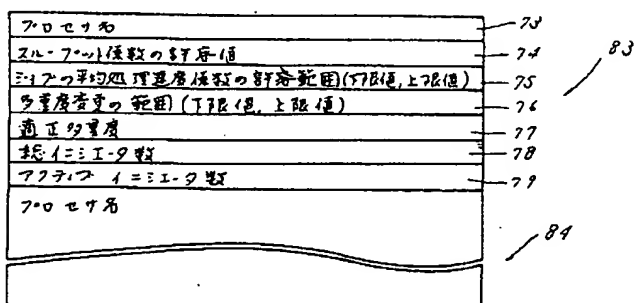 プロセサ名 73
スループット係数の許容値 74
ジョブの平均処理速度係数の許容範囲(下限値,上限値) 75
多重度変更の範囲(下限値,上限値) 76
適正多重度 77
総イニシエータ数 78
アクティブ イニシエータ数 79
プロセサ名
83
84